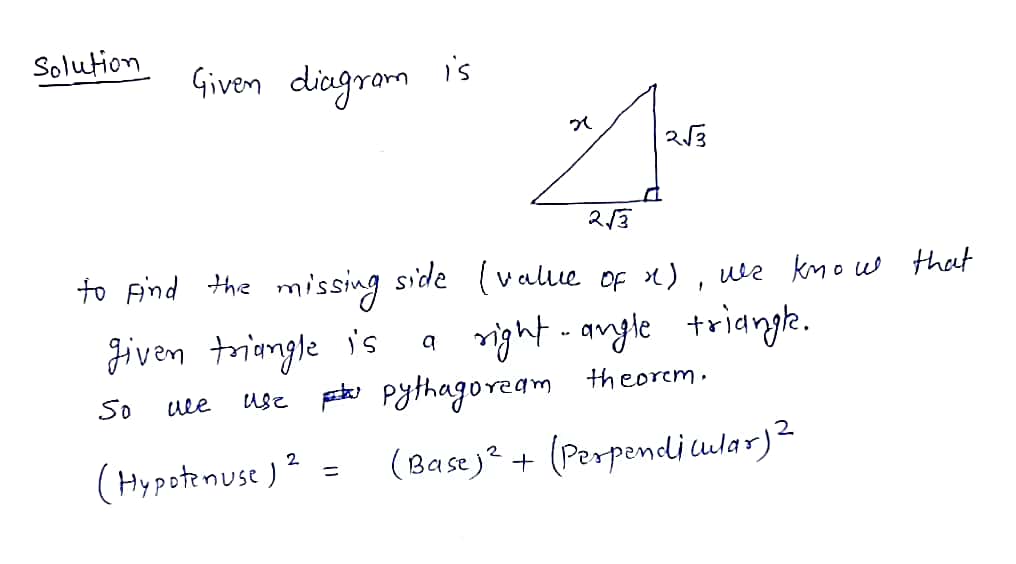 Solution Given diagram is
x
2√3
2√3
to find the missing side (value of x), we know that
given triangle is a right-angle triangle.
So we use pythagoream theorem.
(Hypotenuse)² = (Base)² + (Perpendicular)²